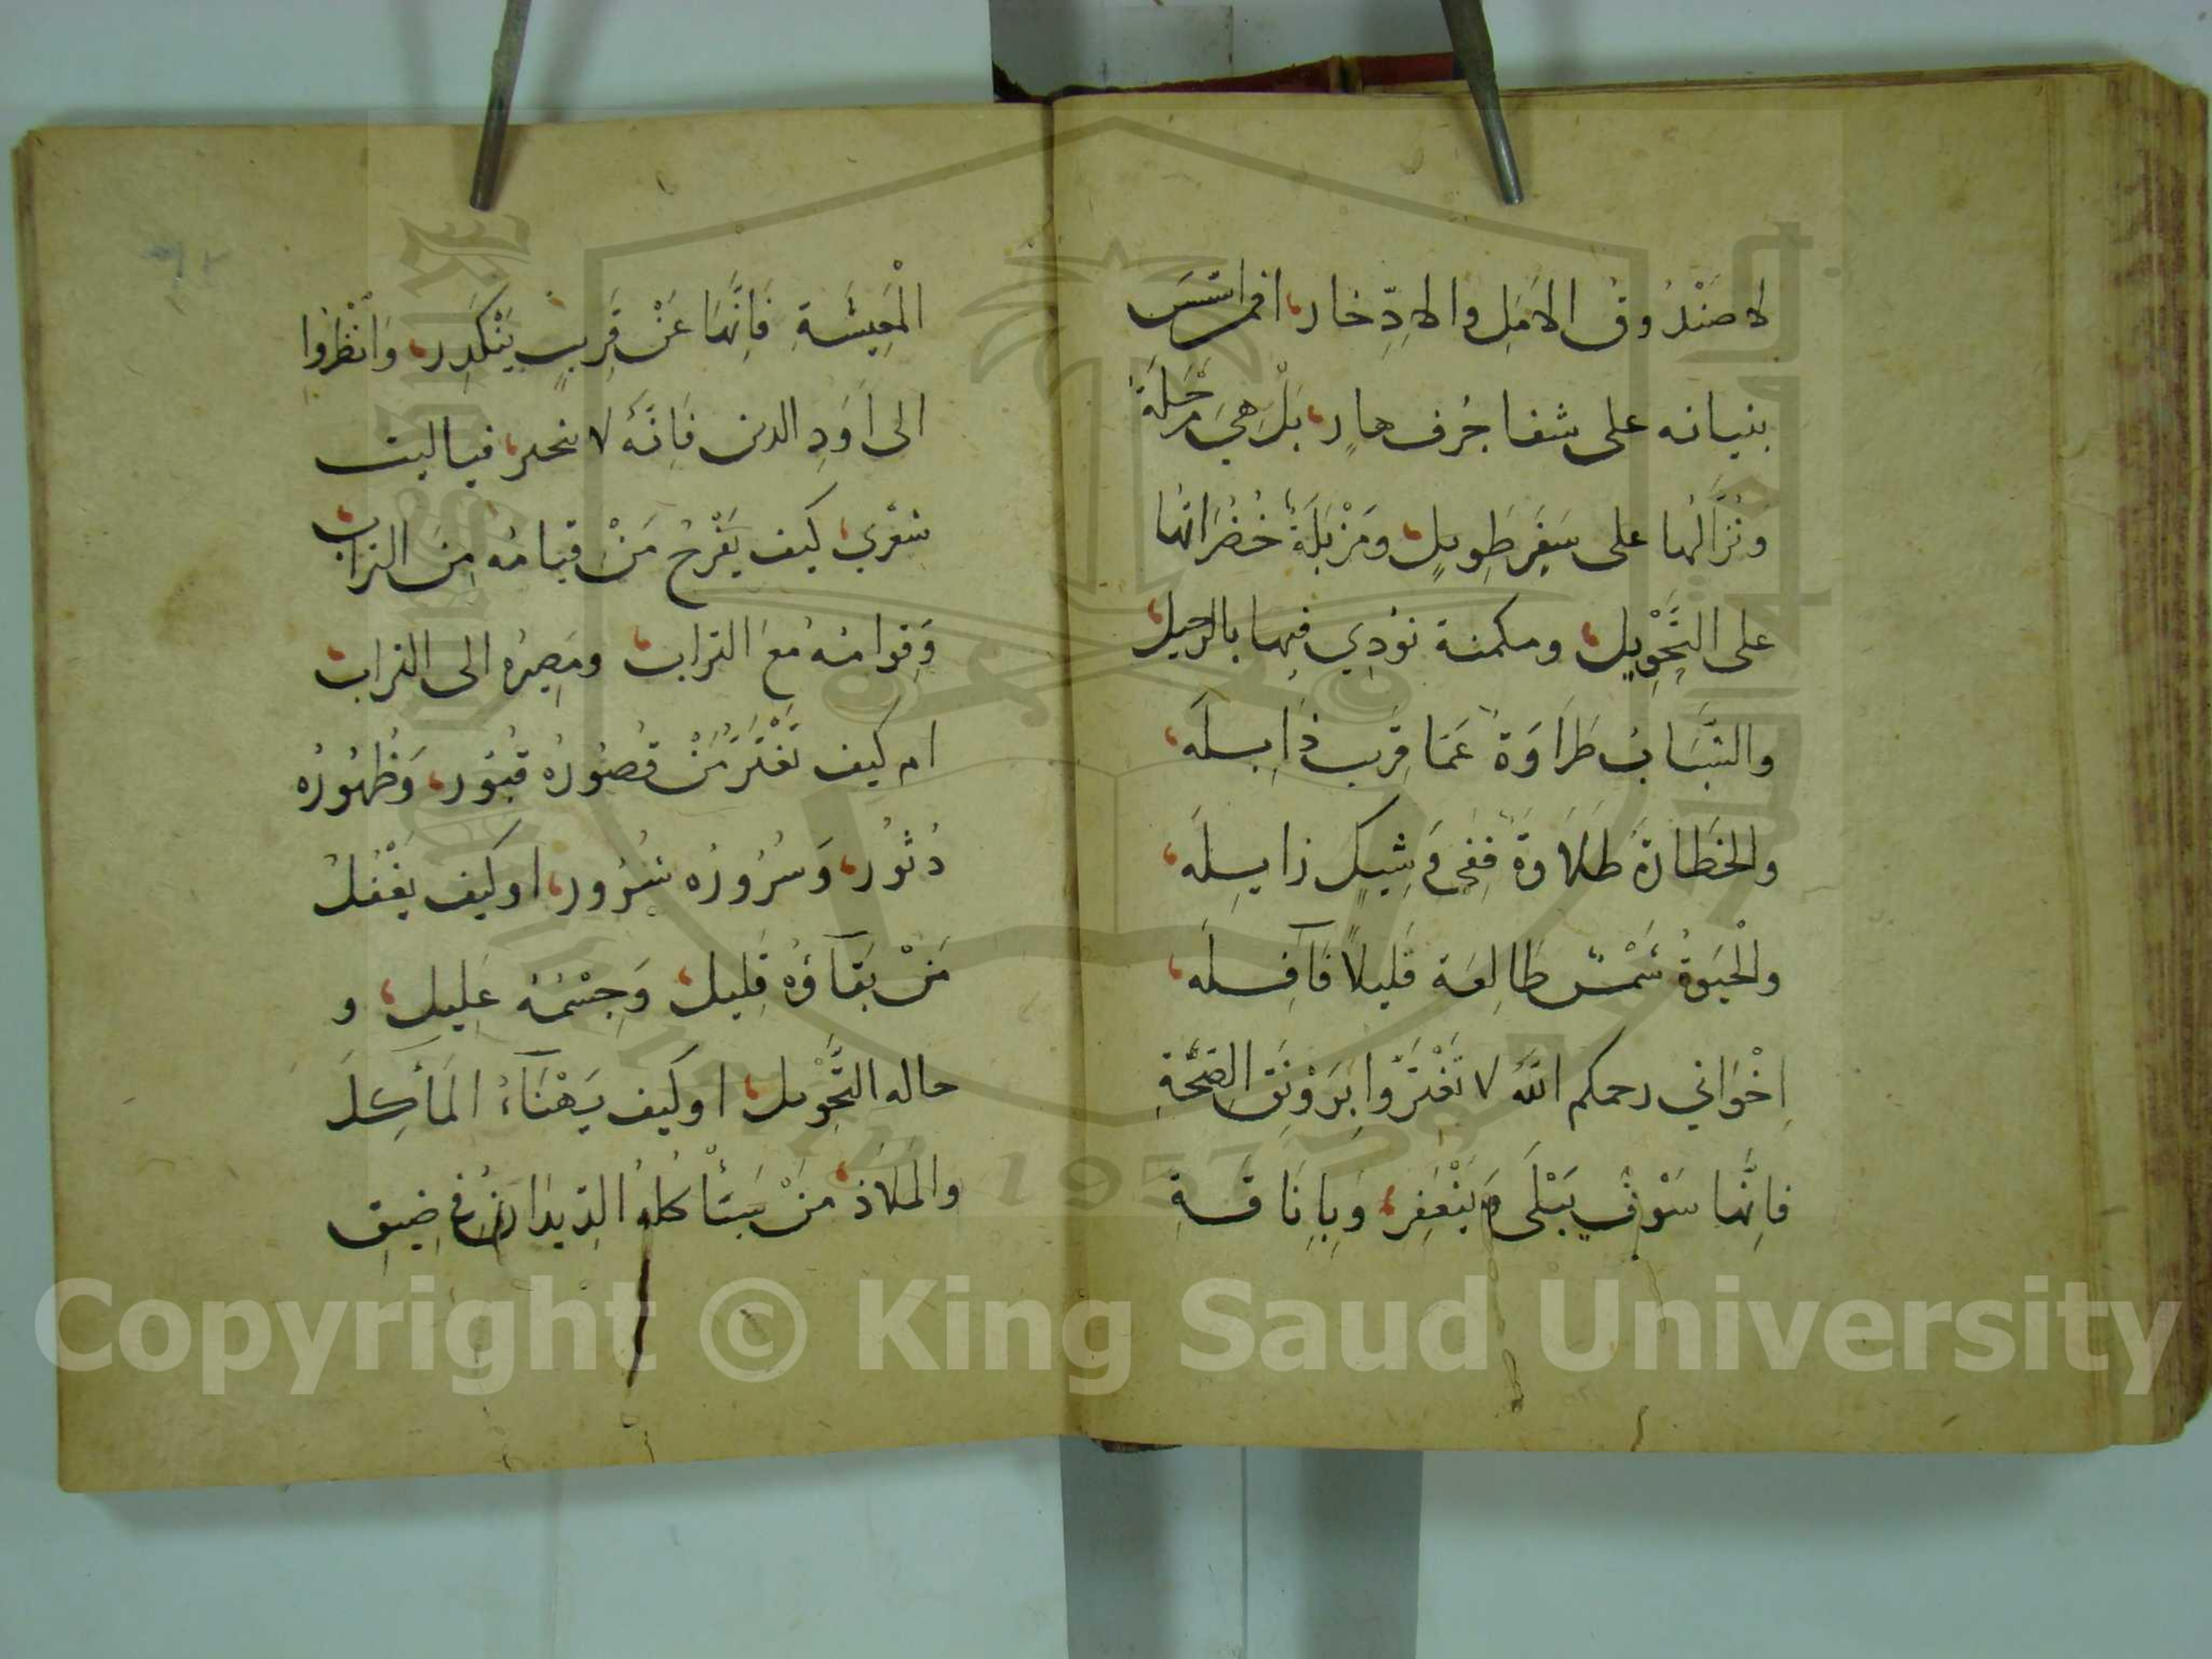 لا صَنْدُوقُ الامَلِ والاِدِّخار، افمن اسّسَ
بنيانه على شفا جُرف هارٍ، بَلْ هِيَ مَرْحَلَةٌ
ونُزَّالُها على سَفَرٍ طَوِيلٍ، ومَزْبَلَةٌ خُضْرَاتُها
على التَّحْوِيلِ، ومكمنة نوُدِي فِيها بالرَّحيل،
والشَّبَابُ طَرَاوَةٌ عَمَا قَرِيبٍ ذَابِلَه،
والخَطَارَةُ طَلَاوَةٌ فَفِي وَشِيكٍ زايِلَه،
والْحَيَوةُ شَمْسٌ طَالِعَة قَلِيلاً فَآفِلَه،
اِخْوَاني رحمكم اللّهُ لا تَغْتَرُّوا بِرَوْنَقِ الصِّحَّةِ
فاِنَّها سَوْفَ يَبْلَى وَيَنْعَفِر، وَبِاِنَاقَةِ
الْمَعِيشَةِ فَاِنَّهَا عَنْ قَرِيبٍ يَنْكَدِر، وَانْظُرُوا
الى اَوَدِ الدين فَاِنَّهُ لا ينجبر، فيا ليت
شعْرِي، كيف يَفْرَحُ مَنْ قيامُه مِنَ التراب،
وَقِوامُه مَعَ التراب، ومَصِيرُه الى التراب،
ام كيف تَغْتَرُّ مَنْ قُصُورُه قبُوُر، وَظُهُورُه
دُثوُر، وَسُرُورُه شُرُور، او كيف يَغْفُلُ
مَنْ بَقآؤُه قَلِيل، وَجِسْمُه عَلِيل، و
حاله التَّحْوِيل، او كيف يَهْنَآءُ المَأكِلَ
والمَلَاذَ، مَنْ سَتَأْكُلُهُ الدِّيدَانُ في ضِيقِ
Copyright © King Saud University
1957